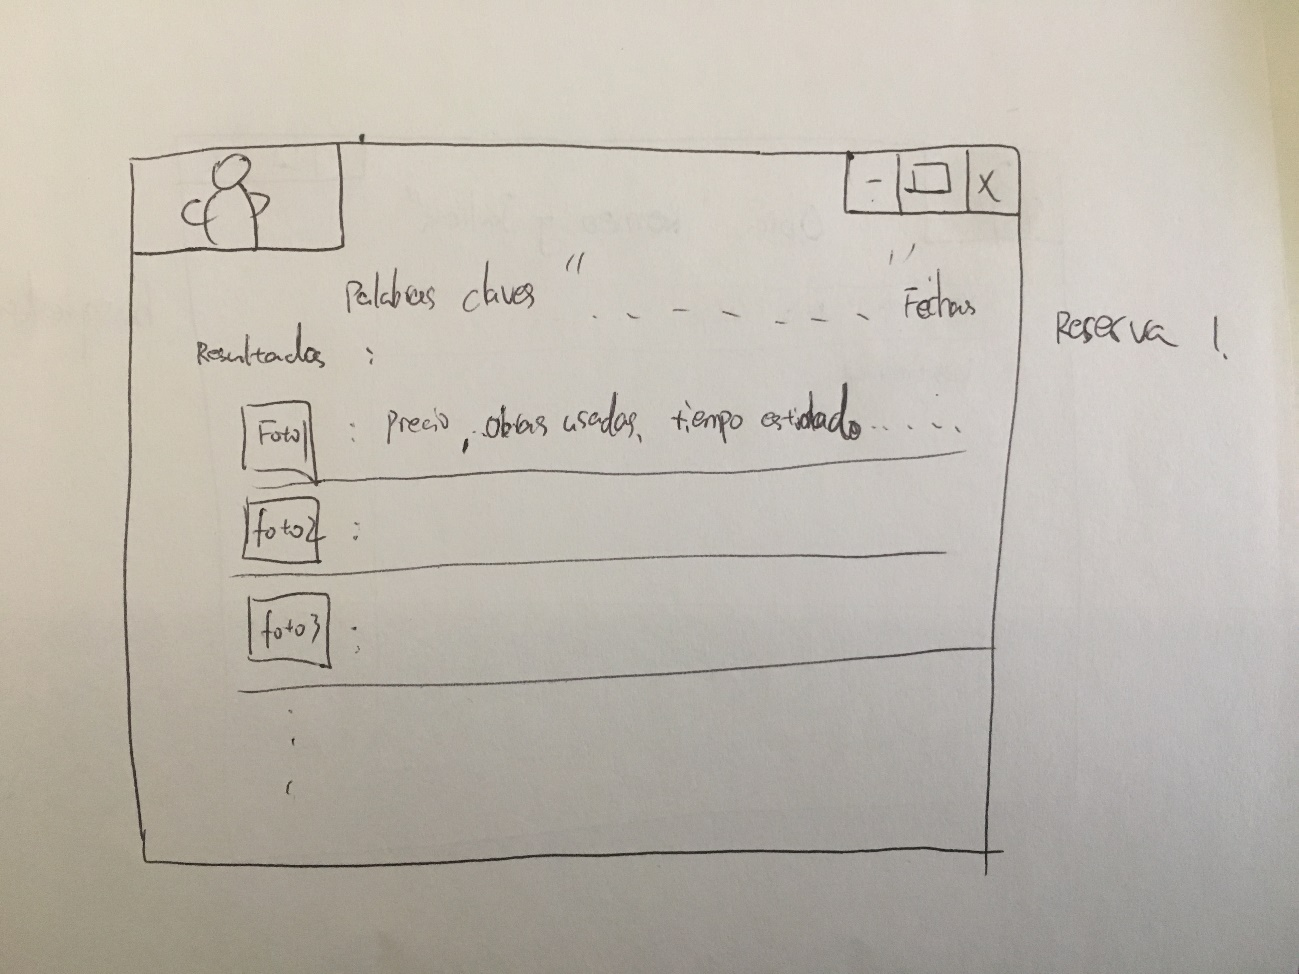 - X
Palabras claves "
" Fechas
Reserva 1.
Resultados :
Foto1 : precio, obras usadas, tiempo
foto2 :
foto3 :